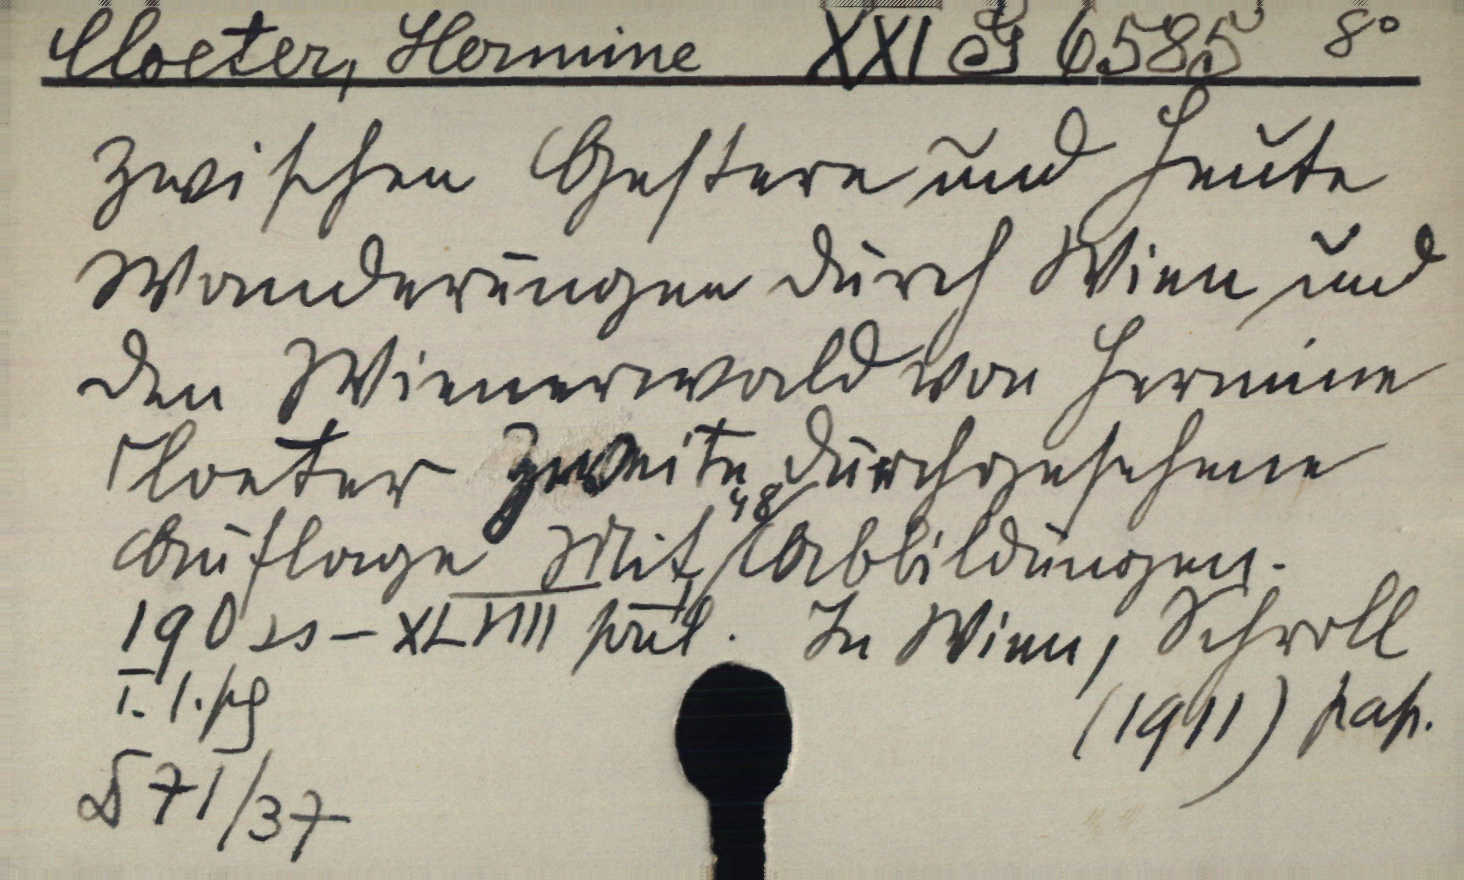 Cloeter, Hermine XXI G 6585 8°
Zwischen Gestern und Heute
Wanderungen durch Wien und
den Wienerwald von Hermine
Cloeter Zweite durchgesehene
Auflage Mit 48 Abbildungen.
190 ss – XLVIII präl. In Wien, Schroll
I. 1. pg (1911) pap.
D 71/37